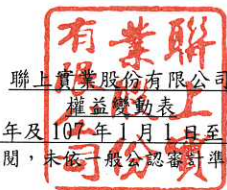 聯上實業股份有限公司
權益變動表
年及107年1月1日至
閱,未依一般公認審計準
聯上實
業股份
有限公司